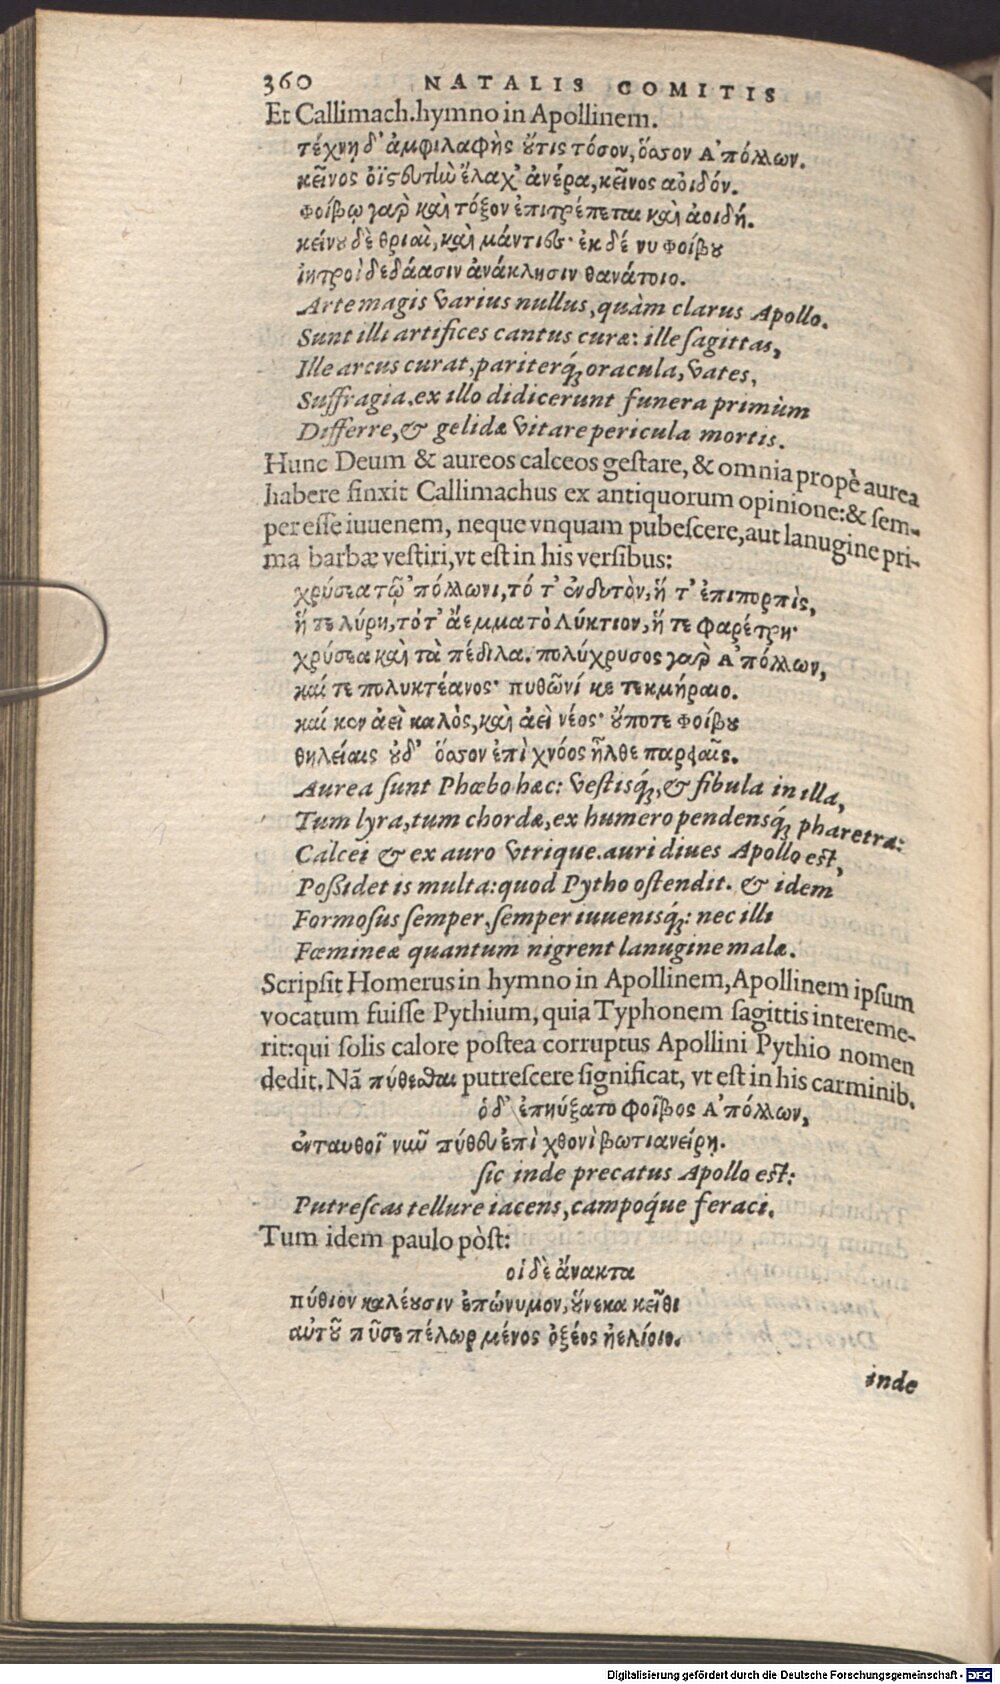 360 NATALIS COMITIS
Et Callimach. hymno in Apollinem.
τέχνῃ δ' ἀμφιλαφὴς οὔτις τόσον, ὅσσον Ἀπόλλων.
κεῖνος ὀϊστευτὴν ἔλαχ' ἀνέρα, κεῖνος ἀοιδόν.
Φοίβῳ γὰρ καὶ τόξον ἐπιτρέπεται καὶ ἀοιδή.
κείνου δὲ θριαὶ, καὶ μάντιες· ἐκ δέ νυ Φοίβου
ἰητροὶ δεδάασιν ἀνάκλησιν θανάτοιο.
Arte magis varius nullus, quàm clarus Apollo.
Sunt illi artifices cantus curæ: ille ſagittas,
Ille arcus curat, pariterq́; oracula, vates,
Suffragia. ex illo didicerunt funera primùm
Differre, & gelidæ vitare pericula mortis.
Hunc Deum & aureos calceos geſtare, & omnia propè aurea
habere finxit Callimachus ex antiquorum opinione: & ſem-
per eſſe iuuenem, neque vnquam pubeſcere, aut lanugine pri-
ma barbæ veſtiri, vt eſt in his verſibus:
χρύσεα τᾦ 'πόλλωνι, τό τ' ἐνδυτὸν, ἥ τ' ἐπιπορπὶς,
ἥ τε λύρη, τό τ' ἄεμμα τὸ Λύκτιον, ἥ τε φαρέτρη·
χρύσεα καὶ τὰ πέδιλα. πολύχρυσος γὰρ Ἀπόλλων,
καί τε πολυκτέανος· πυθῶνί κε τεκμήραιο.
καί κεν ἀεὶ καλὸς, καὶ ἀεὶ νέος· οὔποτε Φοίβου
θηλείαις οὐδ' ὅσσον ἐπὶ χνόος ἦλθε παρειαῖς.
Aurea ſunt Phœbo hæc: veſtisq́;, & fibula in illa,
Tum lyra, tum chordæ, ex humero pendensq́; pharetra:
Calcei & ex auro vtrique. auri diues Apollo eſt,
Poßidet is multa: quod Pytho oſtendit. & idem
Formoſus ſemper, ſemper iuuenisq́;: nec illi
Fœmineæ quantum nigrent lanugine malæ.
Scripſit Homerus in hymno in Apollinem, Apollinem ipſum
vocatum fuiſſe Pythium, quia Typhonem ſagittis intereme-
rit: qui ſolis calore poſtea corruptus Apollini Pythio nomen
dedit. Nã πύθεσθαι putreſcere ſignificat, vt eſt in his carminib.
ὁ δ' ἐπηύξατο Φοῖβος Ἀπόλλων,
ἐνταυθοῖ νῦν πύθευ ἐπὶ χθονὶ βωτιανείρῃ.
ſic inde precatus Apollo eſt:
Putreſcas tellure iacens, campoq́ue feraci.
Tum idem paulo pòſt:
οἱ δὲ ἄνακτα
πύθιον καλέουσιν ἐπώνυμον, οὕνεκα κεῖθι
αὐτοῦ πῦσε πέλωρ μένος ὀξέος ἠελίοιο.
inde
Digitalisierung gefördert durch die Deutsche Forschungsgemeinschaft - DFG